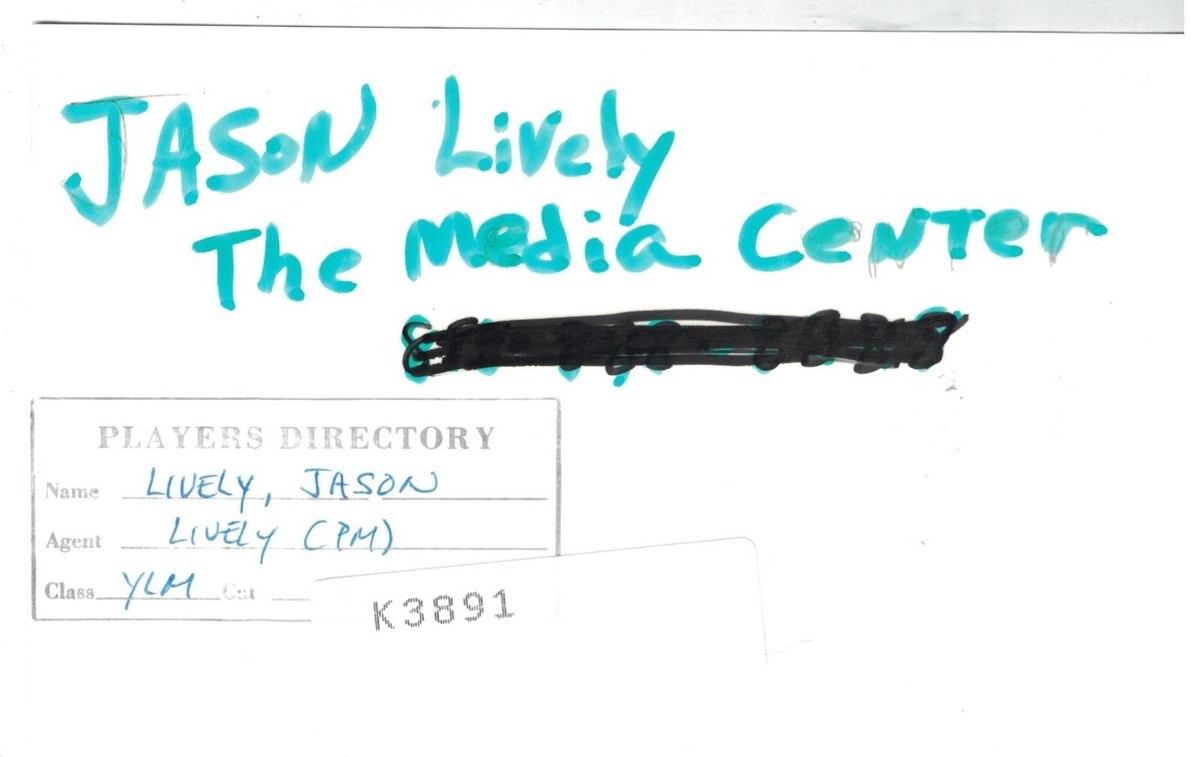 JASON Lively
The Media Center
PLAYERS DIRECTORY
Name LIVELY, JASON
Agent LIVELY (PM)
Class YLM Cut
K3891